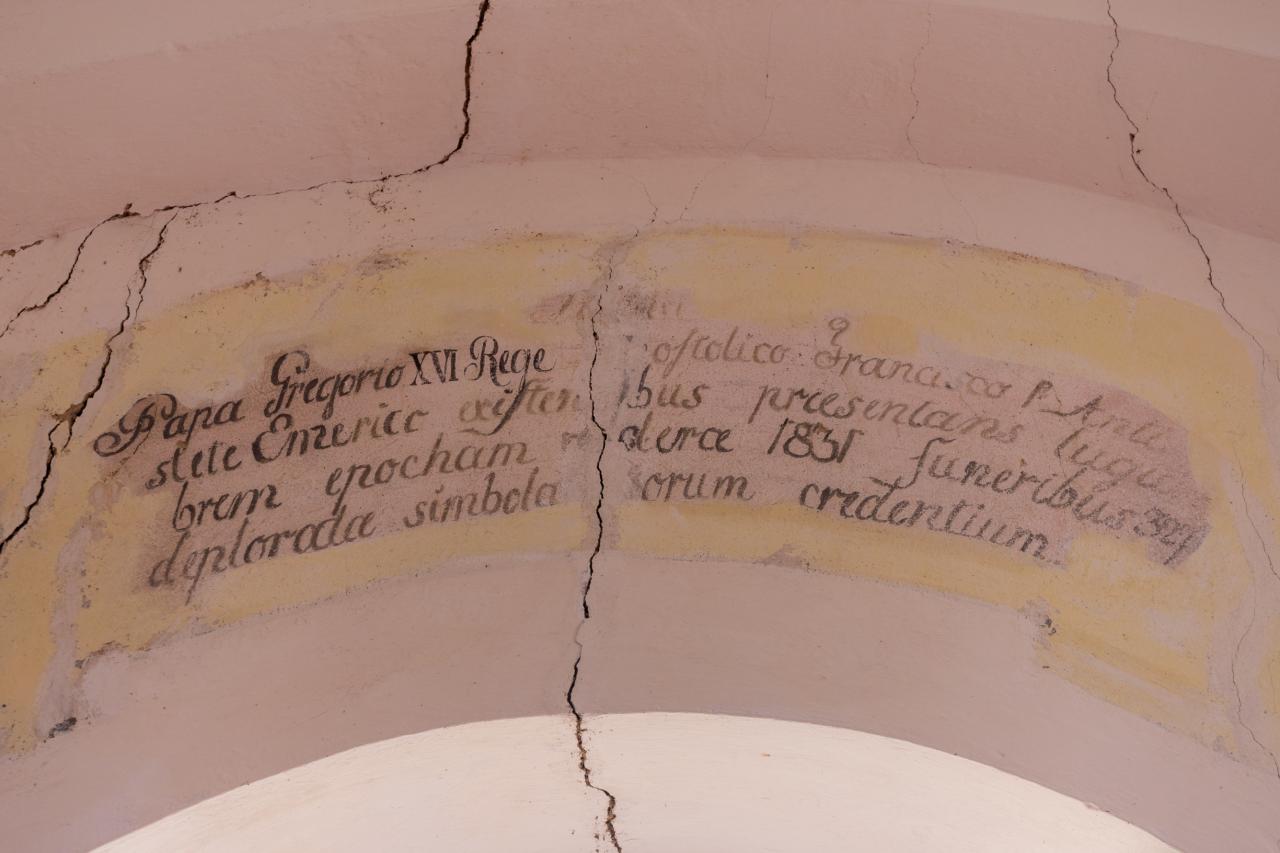 Papa Gregorio XVI Rege ostolico Francisco P. Anti
stete Emerico existen ibus præsentans lugu
brem epocham derce 1831 funeribus 394
deplorada simbola orum credentium